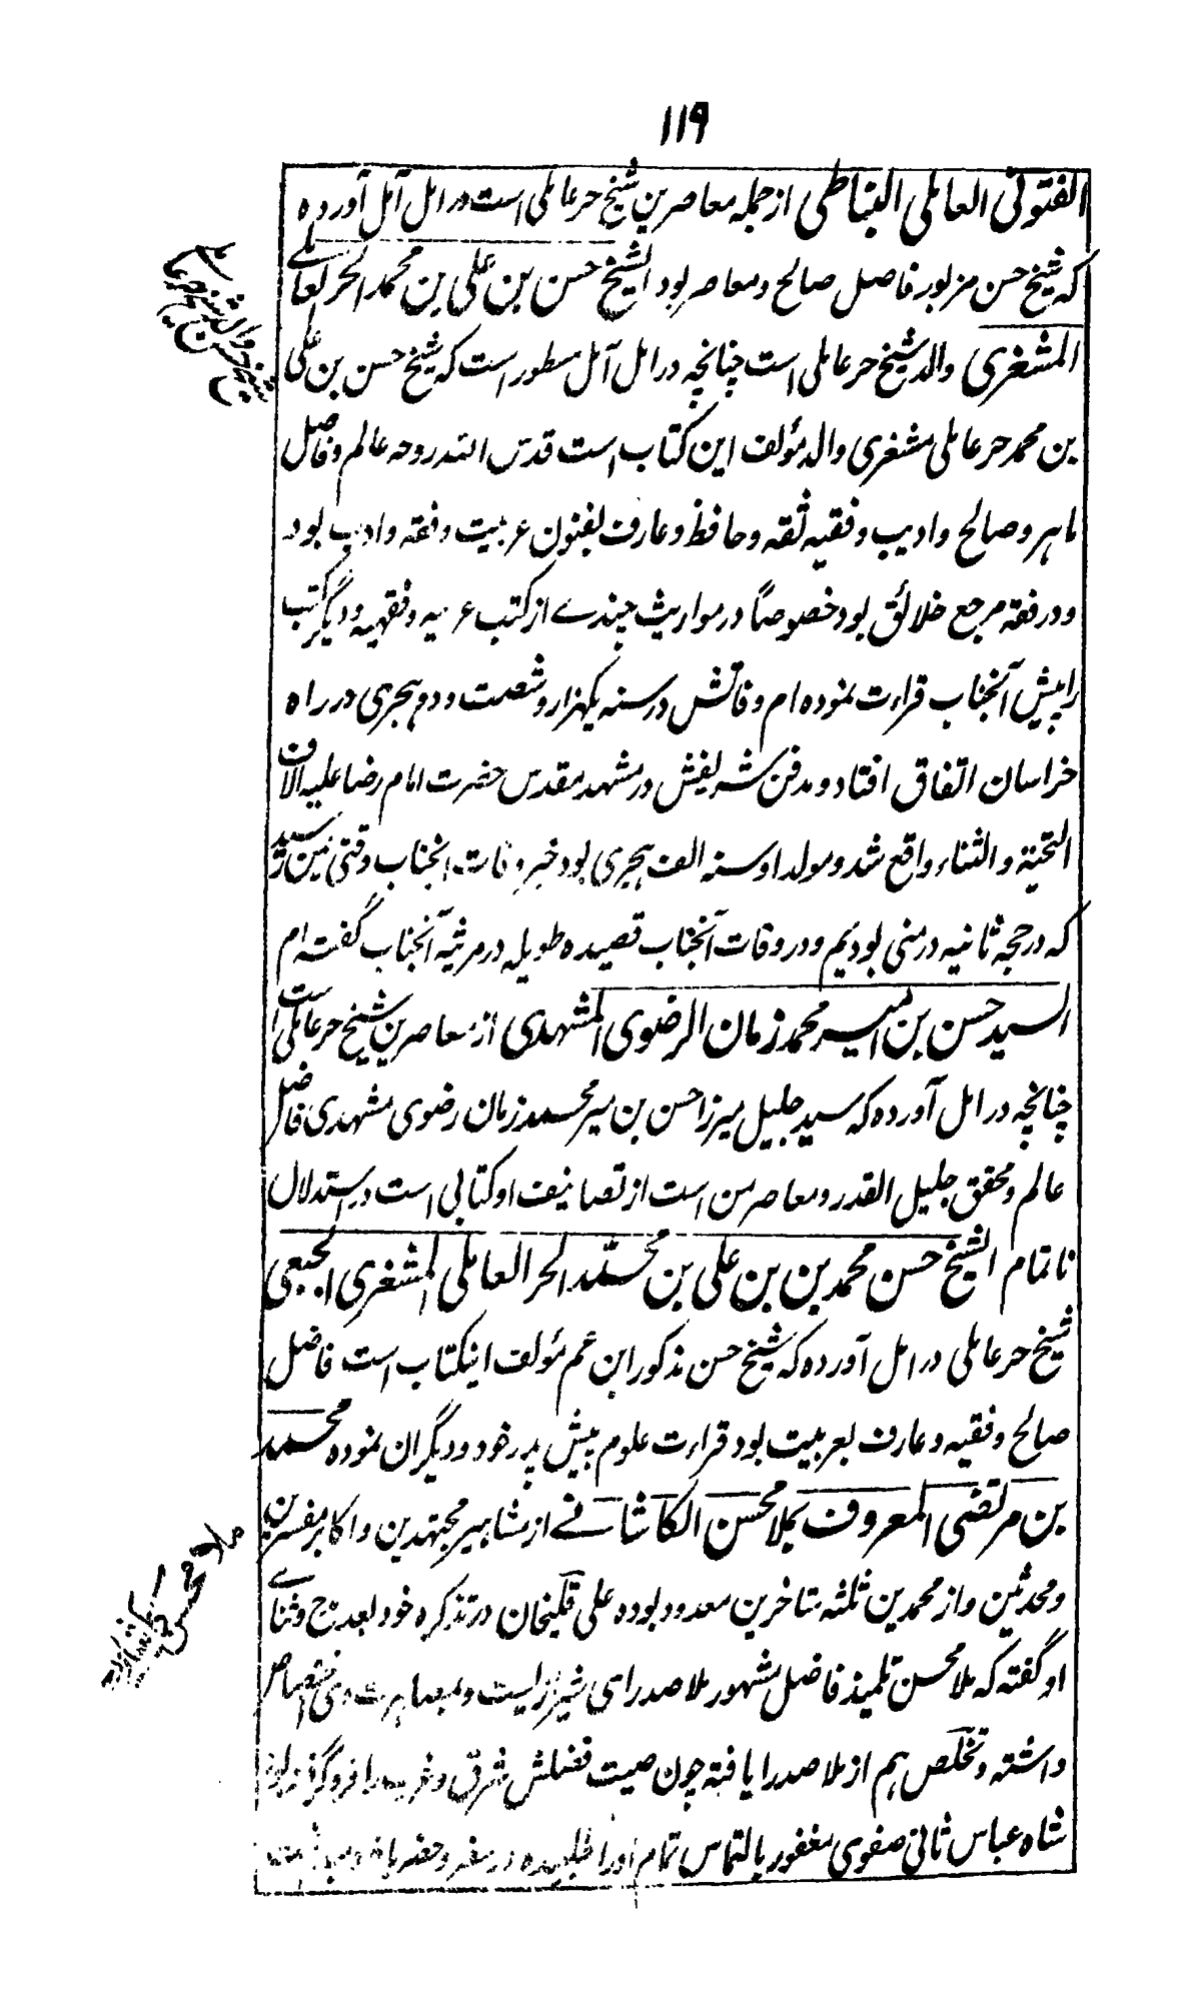 ۱۱۹
الفتونی العاملی النباطی از جمله معاصرین شیخ حر عاملی است در امل آمل آورده
که شیخ حسن مزبور فاضل صالح و معاصر بود الشیخ حسن بن علی بن محمد الحر العاملے
المشغری والد شیخ حر عاملی است چنانچه در امل آمل مسطور است که شیخ حسن بن علی
بن محمد حر عاملی مشغری والد مؤلف این کتاب است قدس الله روحه عالم و فاضل
ماهر و صالح و ادیب و فقیه ثقه و حافظ و عارف بفنون عربیت و فقه و ادب بود
و در فقه مرجع خلائق بود خصوصاً در مواریث چندے از کتب عربیه و فقهیه و دیگر کتب
را پیش آنجناب قراءت نموده ام و فاتش در سنه یکهزار و شصت و دو هجری در راه
خراسان اتفاق افتاد و مدفن شریفش در مشهد مقدس حضرت امام رضا علیه الاف
التحیة و الثناء واقع شد و مولد او سنه الف هجری بود خبر وفات انجناب وقتی بمن رسید
که در حجه ثانیه در منی بودیم و در وفات آنجناب قصیده طویله در مرثیه آنجناب گفته ام
السید حسن بن المیر محمد زمان الرضوی المشهدی از معاصرین شیخ حر عاملی است
چنانچه در امل آورده که سید جلیل میرزا حسن بن میر محمد زمان رضوی مشهدی فاضل
عالم و محقق جلیل القدر و معاصر من است از تصانیف او کتابی است در استدلال
ناتمام الشیخ حسن محمد بن بن علی بن محمّد الحر العاملی المشغری الجبعی
شیخ حر عاملی در امل آورده که شیخ حسن مذکور ابن عم مؤلف اینکتاب است فاضل
صالح و فقیه و عارف بعربیت بود قراءت علوم پیش پدر خود و دیگران نموده محمد
بن مرتضی المعروف بملا محسن الکاشانے از مشاهیر مجتهدین و اکابر مفسرین
و محدثین و از محمدین ثلثه متاخرین معدود بوده علی قلیخان در تذکره خود بعد مدح و ثناے
او گفته که ملا محسن تلمیذ فاضل مشهور ملا صدرای شیرازیست و بمصاهرت وی اختصاص
داشته و تخلص هم از ملا صدرا یافته چون صیت فضلش شرق و غرب را فرو گرفته بود
شاه عباس ثانی صفوی مغفور بالتماس تمام اورا طلبیده در سفر و حضر با خود
شیخ حسن والد شیخ حر عاملی
ملا محسن